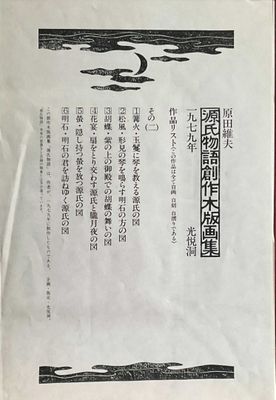 原田維夫
源氏物語創作木版画集
一九七九年　光悦洞
作品リスト(この作品は全て自画、自刻、自摺りである)
その(二)
①篝火・玉鬘に琴を教える源氏の図
②松風・形見の琴を鳴らす明石の方の図
③胡蝶・紫の上の御殿での胡蝶の舞いの図
④花宴・扇をとり交わす源氏と朧月夜の図
⑤螢・隠し持つ螢を放つ源氏の図
⑥明石・明石の君を訪ねゆく源氏の図